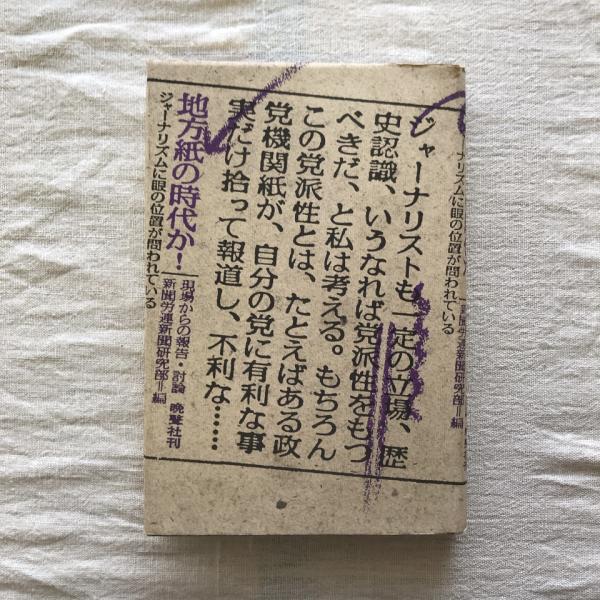 ナリズムに眼の位置が問われている
新聞労連新聞研究部＝編
ジャーナリストも一定の立場、歴
史認識、いうなれば党派性をもつ
べきだ、と私は考える。もちろん
この党派性とは、たとえばある政
党機関紙が、自分の党に有利な事
実だけ拾って報道し、不利な……
地方紙の時代か！
現場からの報告・討論
新聞労連新聞研究部＝編
晩聲社刊
ジャーナリズムに眼の位置が問われている